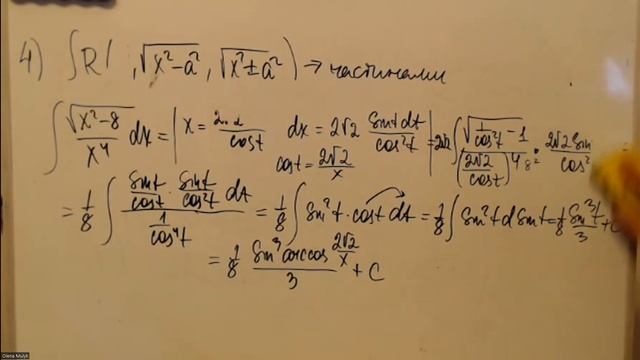 4) ∫R( , √(x²-a²), √(x²±a²)) → частинами
∫ √(x²-8)/x⁴ dx = | x = 2√2/cost dx = 2√2 sint dt/cos²t cost = 2√2/x | = 2√2 ∫ √(1/cos²t - 1)/(2√2/cost)⁴ · 2√2 sin/cos²
= 1/8 ∫ (sint/cost · sint/cos²t dt)/(1/cos⁴t) = 1/8 ∫ sin²t · cost dt = 1/8 ∫ sin²t d sint = 1/8 sin³t/3 + C
= 1/8 sin³ arccos 2√2/x / 3 + C
Olena Mulyk